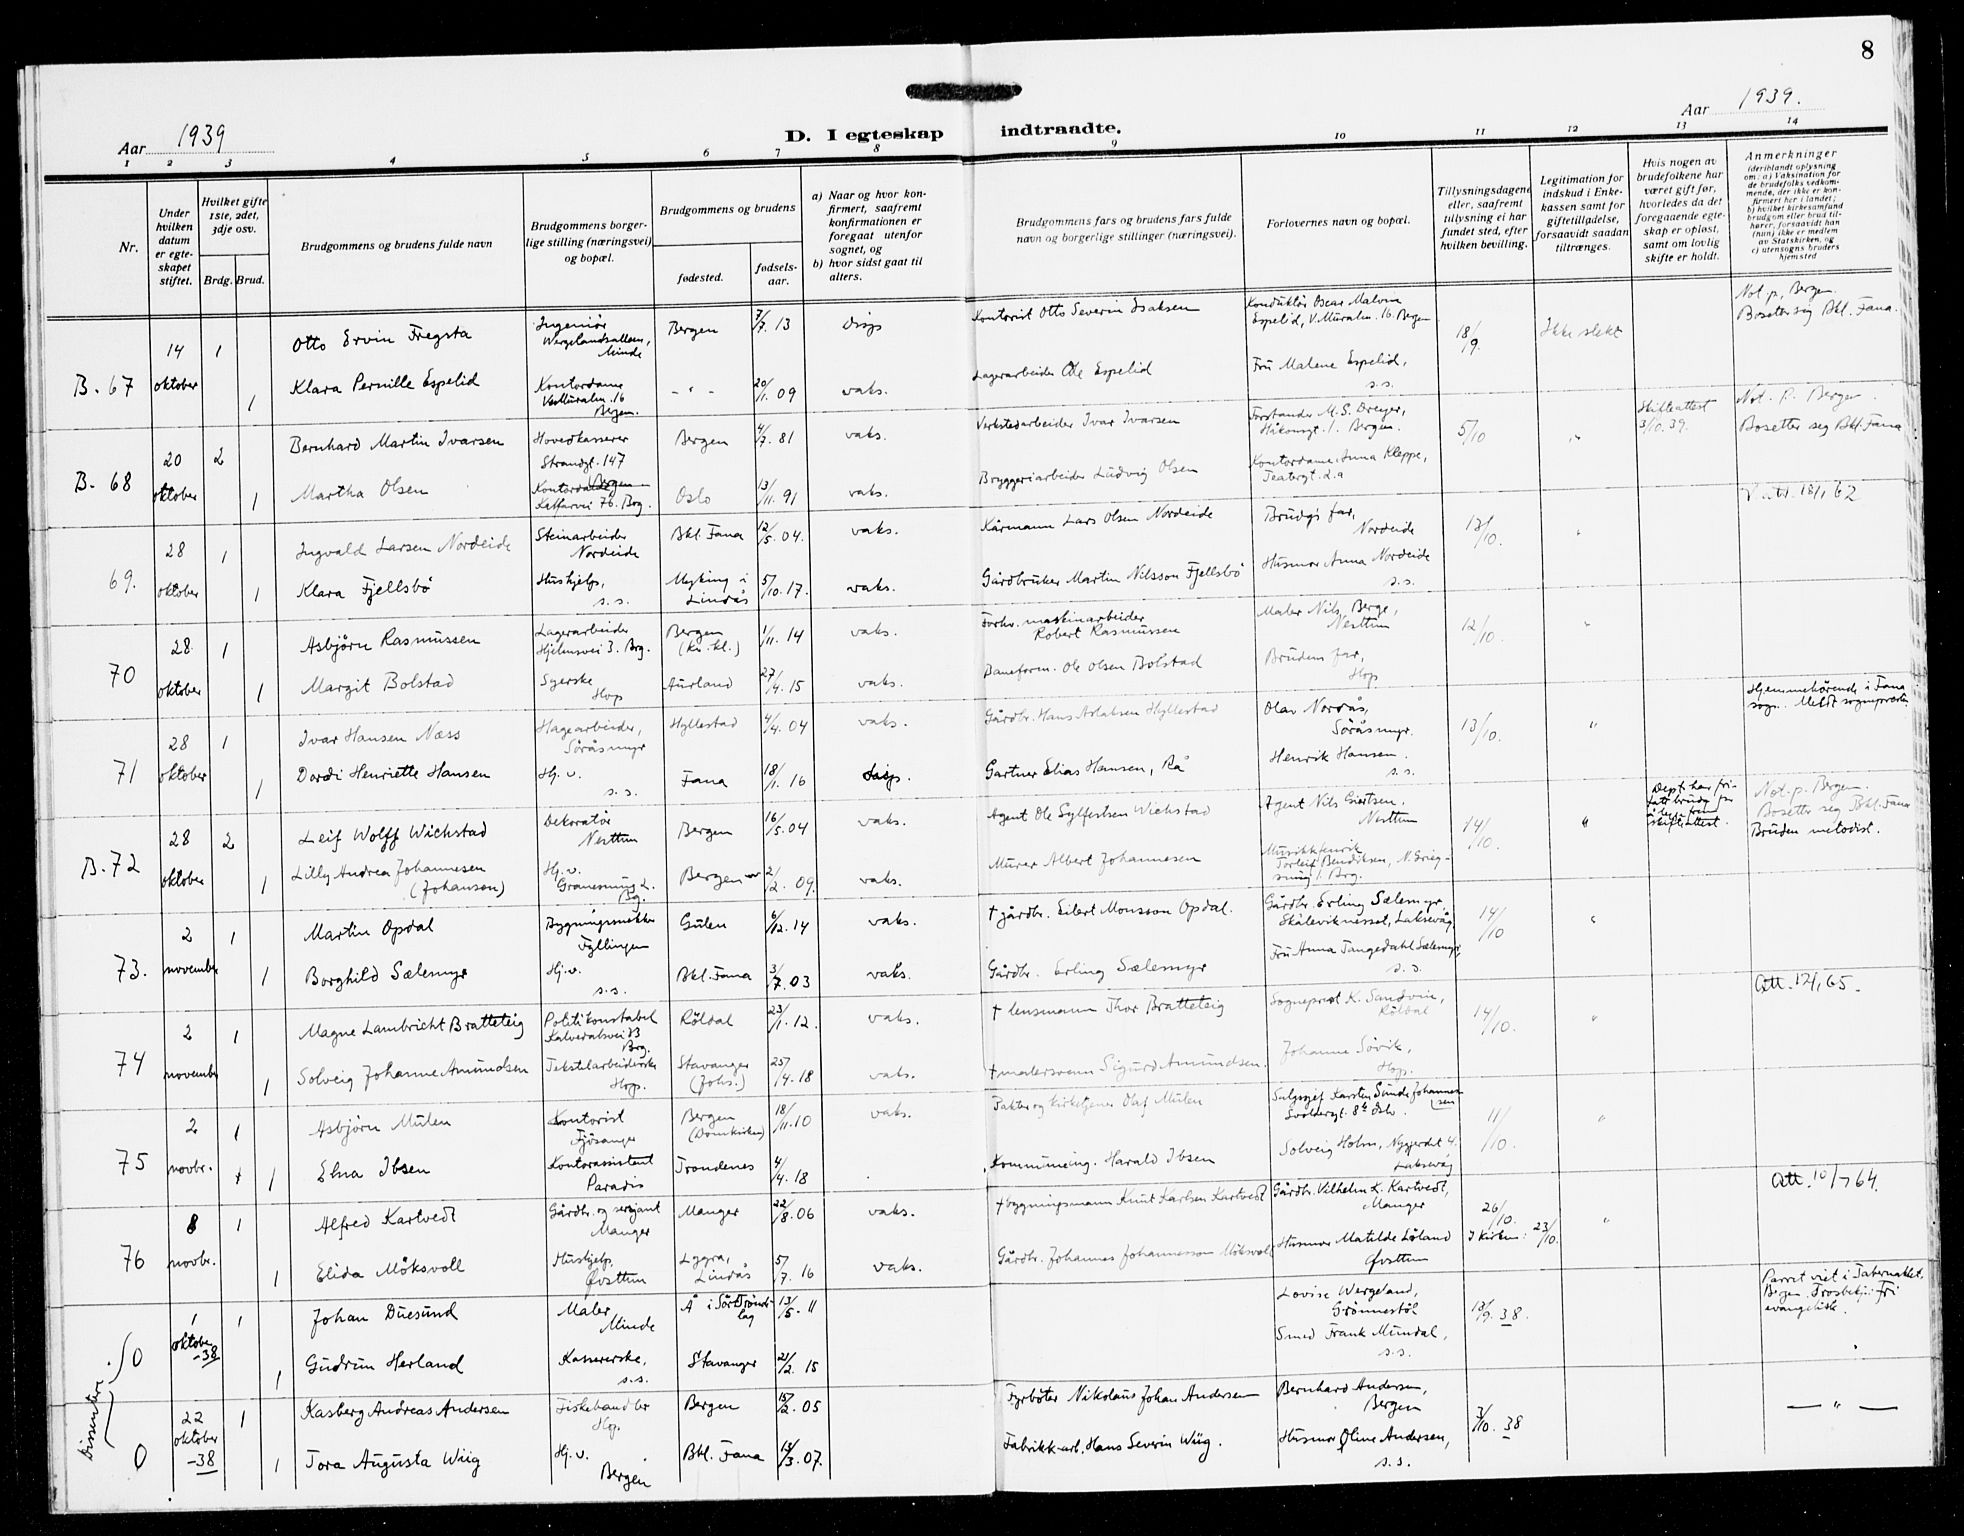 8
Aar 1939
D. I egteskap indtraadte.
Aar 1939.
1 2 3 4 5 6 7 8 9 10 11 12 13 14
Nr.
Under hvilken datum er egteskapet stiftet.
Hvilket gifte 1ste, 2det, 3dje osv.
Brdg. Brud.
Brudgommens og brudens fulde navn
Brudgommens borgerlige stilling (næringsvei) og bopæl.
Brudgommens og brudens
fødested.
fødselsaar.
a) Naar og hvor konfirmert, saafremt konfirmationen er foregaat utenfor sognet, og
b) hvor sidst gaat til alters.
Brudgommens fars og brudens fars fulde navn og borgerlige stillinger (næringsvei).
Forlovernes navn og bopæl.
Tillysningsdagene eller, saafremt tillysning ei har fundet sted, efter hvilken bevilling.
Legitimation for indskud i Enkekassen samt for giftetilladelse, forsaavidt saadan tiltrænges.
Hvis nogen av brudefolkene har været gift før, hvorledes da det foregaaende egteskap er opløst, samt om lovlig skifte er holdt.
Anmerkninger
(deriblandt oplysning om: a) Vaksination for de brudefolks vedkommende, der ikke er konfirmert her i landet; b) hvilket kirkesamfund brudgom eller brud tilhører, forsaavidt han (hun) ikke er medlem av Statskirken, og c) utensogns bruders hjemsted
B. 67 14 oktober
1 Otto Ervin Fregsta Ingeniør Wergelandsalleen, Minde Bergen 7/7. 13 disp Kontorist Otto Severin Isaksen Konduktør Oscar Malvin Espelid, V. Muralm. 16. Bergen 18/9. Ikke slekt Not. p. Bergen. Bosetter sig Bkl. Fana.
1 Klara Pernille Espelid Kontordame V. Muralm. 16 Bergen. - " - 20/1. 09 vaks. Lagerarbeider Ole Espelid Fru Malene Espelid, s.s.
B. 68 20 oktober
2 Bernhard Martin Ivarsen Hovedkasserer Strandgt. 147 Bergen Bergen 4/7. 81 vaks. Verkstedarbeider Ivar Ivarsen Forstander M. S. Dreyer, Håkonsgt. 1. Bergen. 5/10 " Skifteattest 3/10. 39. Not. p. Bergen. Bosetter seg Bkl. Fana
1 Martha Olsen Kontordame Kalfarvei 76. Brg. Oslo 13/11. 91 vaks. Bryggeriarbeider Ludvig Olsen Kontordame Anna Kleppe, Teatergt. 2.a
69. 28 oktober
1 Ingvald Larsen Nordeide Steinarbeider Nordeide Bkl. Fana 12/5. 04. vaks. Kårmann Lars Olsen Nordeide Brudg's far, Nordeide 13/10. "
1 Klara Fjellsbö Hushjelp, s.s. Myking i Lindås 5/10. 17. vaks. Gårdbruker Martin Nilsson Fjellsbö Husmor Anna Nordeide s.s.
70 28. oktober
1 Asbjörn Rasmussen Lagerarbeider Hjelmsvei 3. Brg. Bergen 1/11. 14 vaks. Forhv. maskinarbeider Robert Rasmussen Maler Nils Berge, Nesttun 12/10. "
1 Margit Bolstad Syerske Hop Aurland 27/4. 15 vaks. Baneform. Ole Olsen Bolstad Brudens far, Hop
71 28 oktober
1 Ivar Hansen Næss Hagearbeider, Söråsmyr Hyllestad 4/4. 04 vaks. Gårdbr. Hans Aslaksen Hyllestad Olav Nordås, Söråsmyr. 13/10. " Hjemmehørende i Fana sogn. Meldt sogneprest
1 Dordi Henriette Hansen Hj. v. s.s. Fana 18/1. 16 disp. Gartner Elias Hansen, Rå Henrik Hansen. s.s.
B. 72 28 oktober
2 Leif Wolff Wichstad Dekoratør Nesttun Bergen 16/5. 04 vaks. Agent Ole Sylfestsen Wichstad Agent Nils Giertsen. Nesttun 14/10. " Not. p. Bergen. Bosetter seg Bkl. Fana Bruden metodist.
1 Lilly Andrea Johannesen (Johansen) Hj. v. Bg. Bergen 2/12. 09. vaks. Murer Albert Johannesen Torleif Bendiksen, N. Griegsmug 1. Brg.
73. 2 november
1 Martin Opdal Bygningssnekker Fyllingen Gulen 6/12. 14 vaks. † gårdbr. Eilert Monsson Opdal. Gårdbr. Erling Sælemyr, Skålevikneset, Laksevåg 14/10 "
1 Borghild Sælemyr Hj. v. s.s. Bkl. Fana 3/7. 03 vaks. Gårdbr. Erling Sælemyr Fru Anna Tangedahl Sælemyr, s.s.
74 2 november
1 Magne Lambricht Bratteteig Politikonstabel Kalvedalsvei Brg. Röldal 23/1. 12. vaks. † lensmann Thor Bratteteig Sogneprest K. Sandvin, Röldal 14/10. " Att. 12/1 65.
1 Solveig Johanne Amundsen Tekstilarbeiderske Hop. Stavanger (Johs.) 25/4. 18 vaks. † malersvenn Sigurd Amundsen. Johanne Sörvik, Hop.
75 2 novbr.
1 Asbjörn Mulen Kontorist Fjösanger Bergen (Domkirken) 18/11. 10 vaks. Pakter og kirketjener Olaf Mulen Salgssjef Karsten Sunde Johannessen Oslo. 11/10. "
1 Elna Ibsen Kontorassistent Paradis Trondenes 4/4. 18 Kommuneing. Harald Ibsen Solveig Holm, Nygjerdet 4. Laksevåg
76 8 novbr.
1 Alfred Kartvedt Gårdbr. og sersjant Manger Manger 22/8. 06 vaks. † bygningsmann Knut Karlsen Kartvedt Gårdbr. Vilhelm K. Kartvedt, Manger 26/10. I kirken: 23/10. " Att. 10/7 64.
1 Elida Möksvoll Hushjelp, Øvsttun Lygra, Lindås 5/7. 16 vaks. Gårdbr. Johannes Johannessen Möksvoll Husmor Matilde Løland Øvsttun
Dissentere
0 1 oktober -38
1 Johan Duesund Maler, Minde Å i Sör-Tröndelag 13/5. 11 Lovise Wergeland, Grönnestöl 13/9. 38. Parret viet i Tabernaklet. Bergen. Trosbekj.: Fri evangelisk.
1 Gudrun Herland Kassererske, s.s. Stavanger 21/2. 15 Smed Frank Mundal, s.s.
0 22 oktober -38
1 Kasberg Andreas Andersen Fiskehandler Hop. Bergen 15/2. 05 Fyrböter Nikolaus Johan Andersen Bernhard Andersen, Bergen 3/10. 38 — " —
1 Tora Augusta Wiig Hj. v. Bergen Bkl. Fana 13/3. 07. Fabrikk-arb. Hans Severin Wiig. Husmor Oline Andersen, s.s.